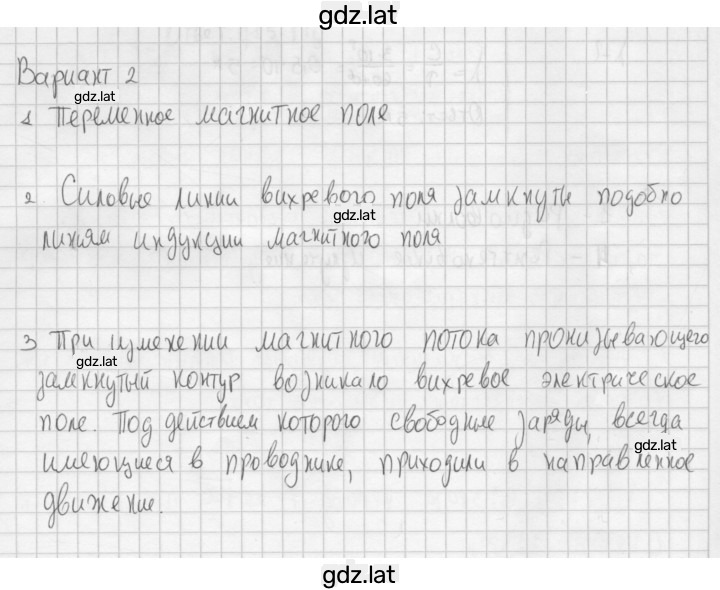 gdz.lat
Вариант 2
gdz.lat
1 Переменное магнитное поле
2. Силовые линии вихревого поля замкнуты подобно
gdz.lat
линиям индукции магнитного поля
3 При изменении магнитного потока пронизывающего
gdz.lat
замкнутый контур возникало вихревое электрическое
поле. Под действием которого свободные заряды, всегда
gdz.lat
имеющиеся в проводнике, приходили в направленное
движение.
gdz.lat